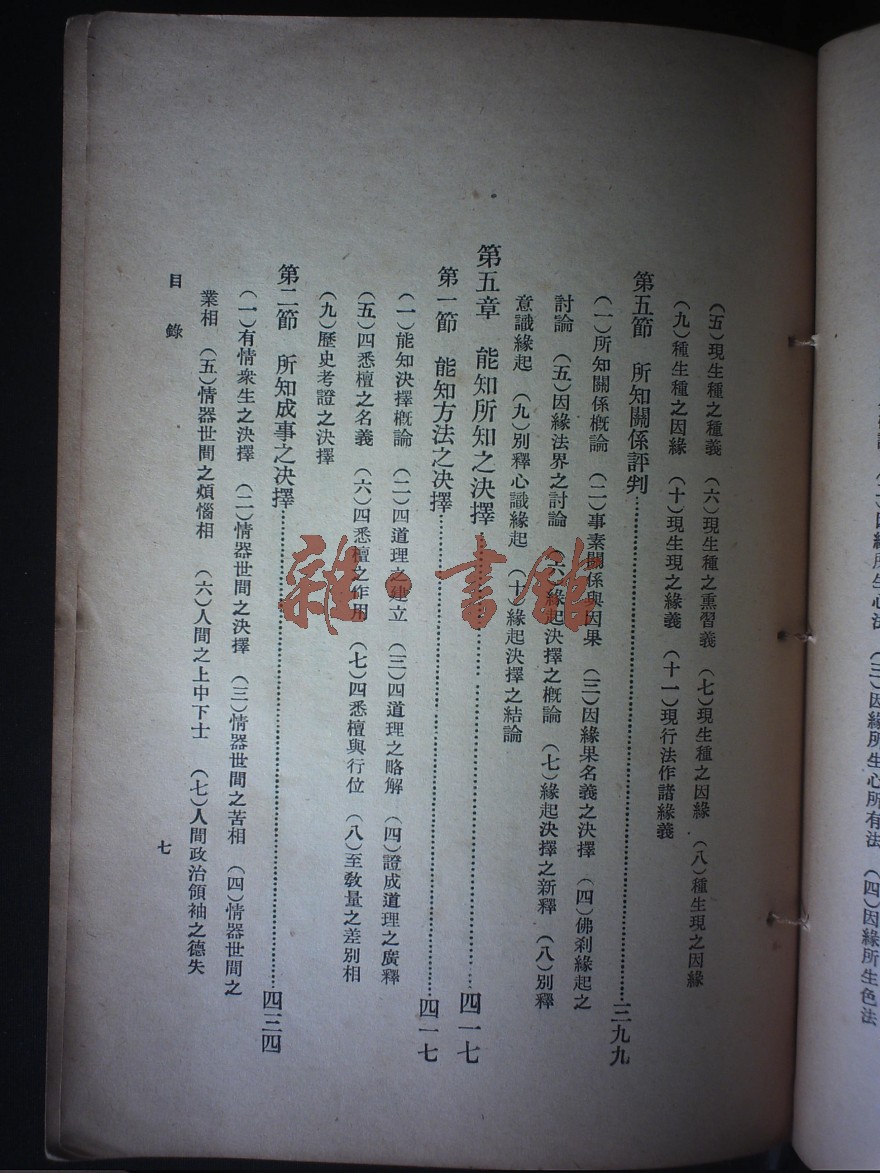 （四）因緣所生色法
（三）因緣所生心所有法
（五）現生種之種義　（六）現生種之熏習義　（七）現生種之因緣　（八）種生現之因緣
（九）種生種之因緣　（十）現生現之緣義　（十一）現行法作諸緣義
第五節　所知關係評判…………三九九
（一）所知關係概論　（二）事素關係與因果　（三）因緣果名義之決擇　（四）佛刹緣起之
討論　（五）因緣法界之討論　（六）緣起決擇之概論　（七）緣起決擇之新釋　（八）別釋
意識緣起　（九）別釋心識緣起　（十）緣起決擇之結論
第五章　能知所知之決擇…………四一七
第一節　能知方法之決擇…………四一七
（一）能知決擇概論　（二）四道理之建立　（三）四道理之略解　（四）證成道理之廣釋
（五）四悉檀之名義　（六）四悉檀之作用　（七）四悉檀與行位　（八）至教量之差別相
（九）歷史考證之決擇
第二節　所知成事之決擇…………四三四
（一）有情衆生之決擇　（二）情器世間之決擇　（三）情器世間之苦相　（四）情器世間之
業相　（五）情器世間之煩惱相　（六）人間之上中下士　（七）人間政治領袖之德失
目錄
七
雜·書館